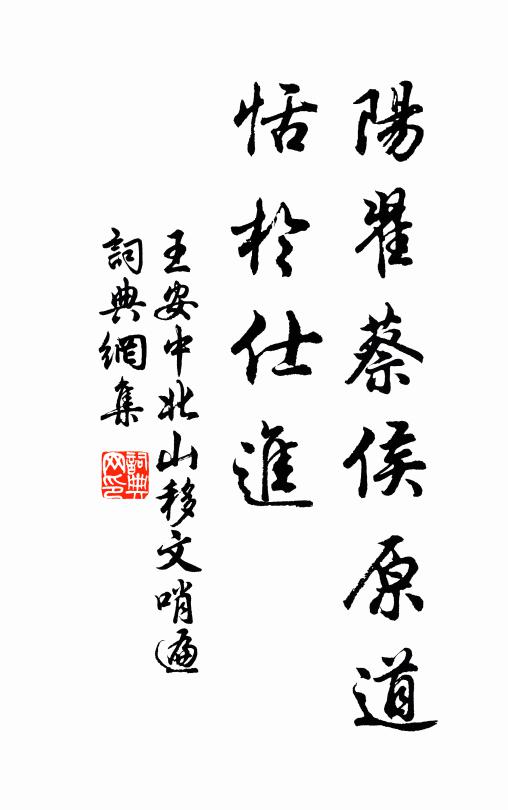 陽翟蔡侯原道
恬於仕進
王安中北山移文哨遍
詞典網集
詞典網印